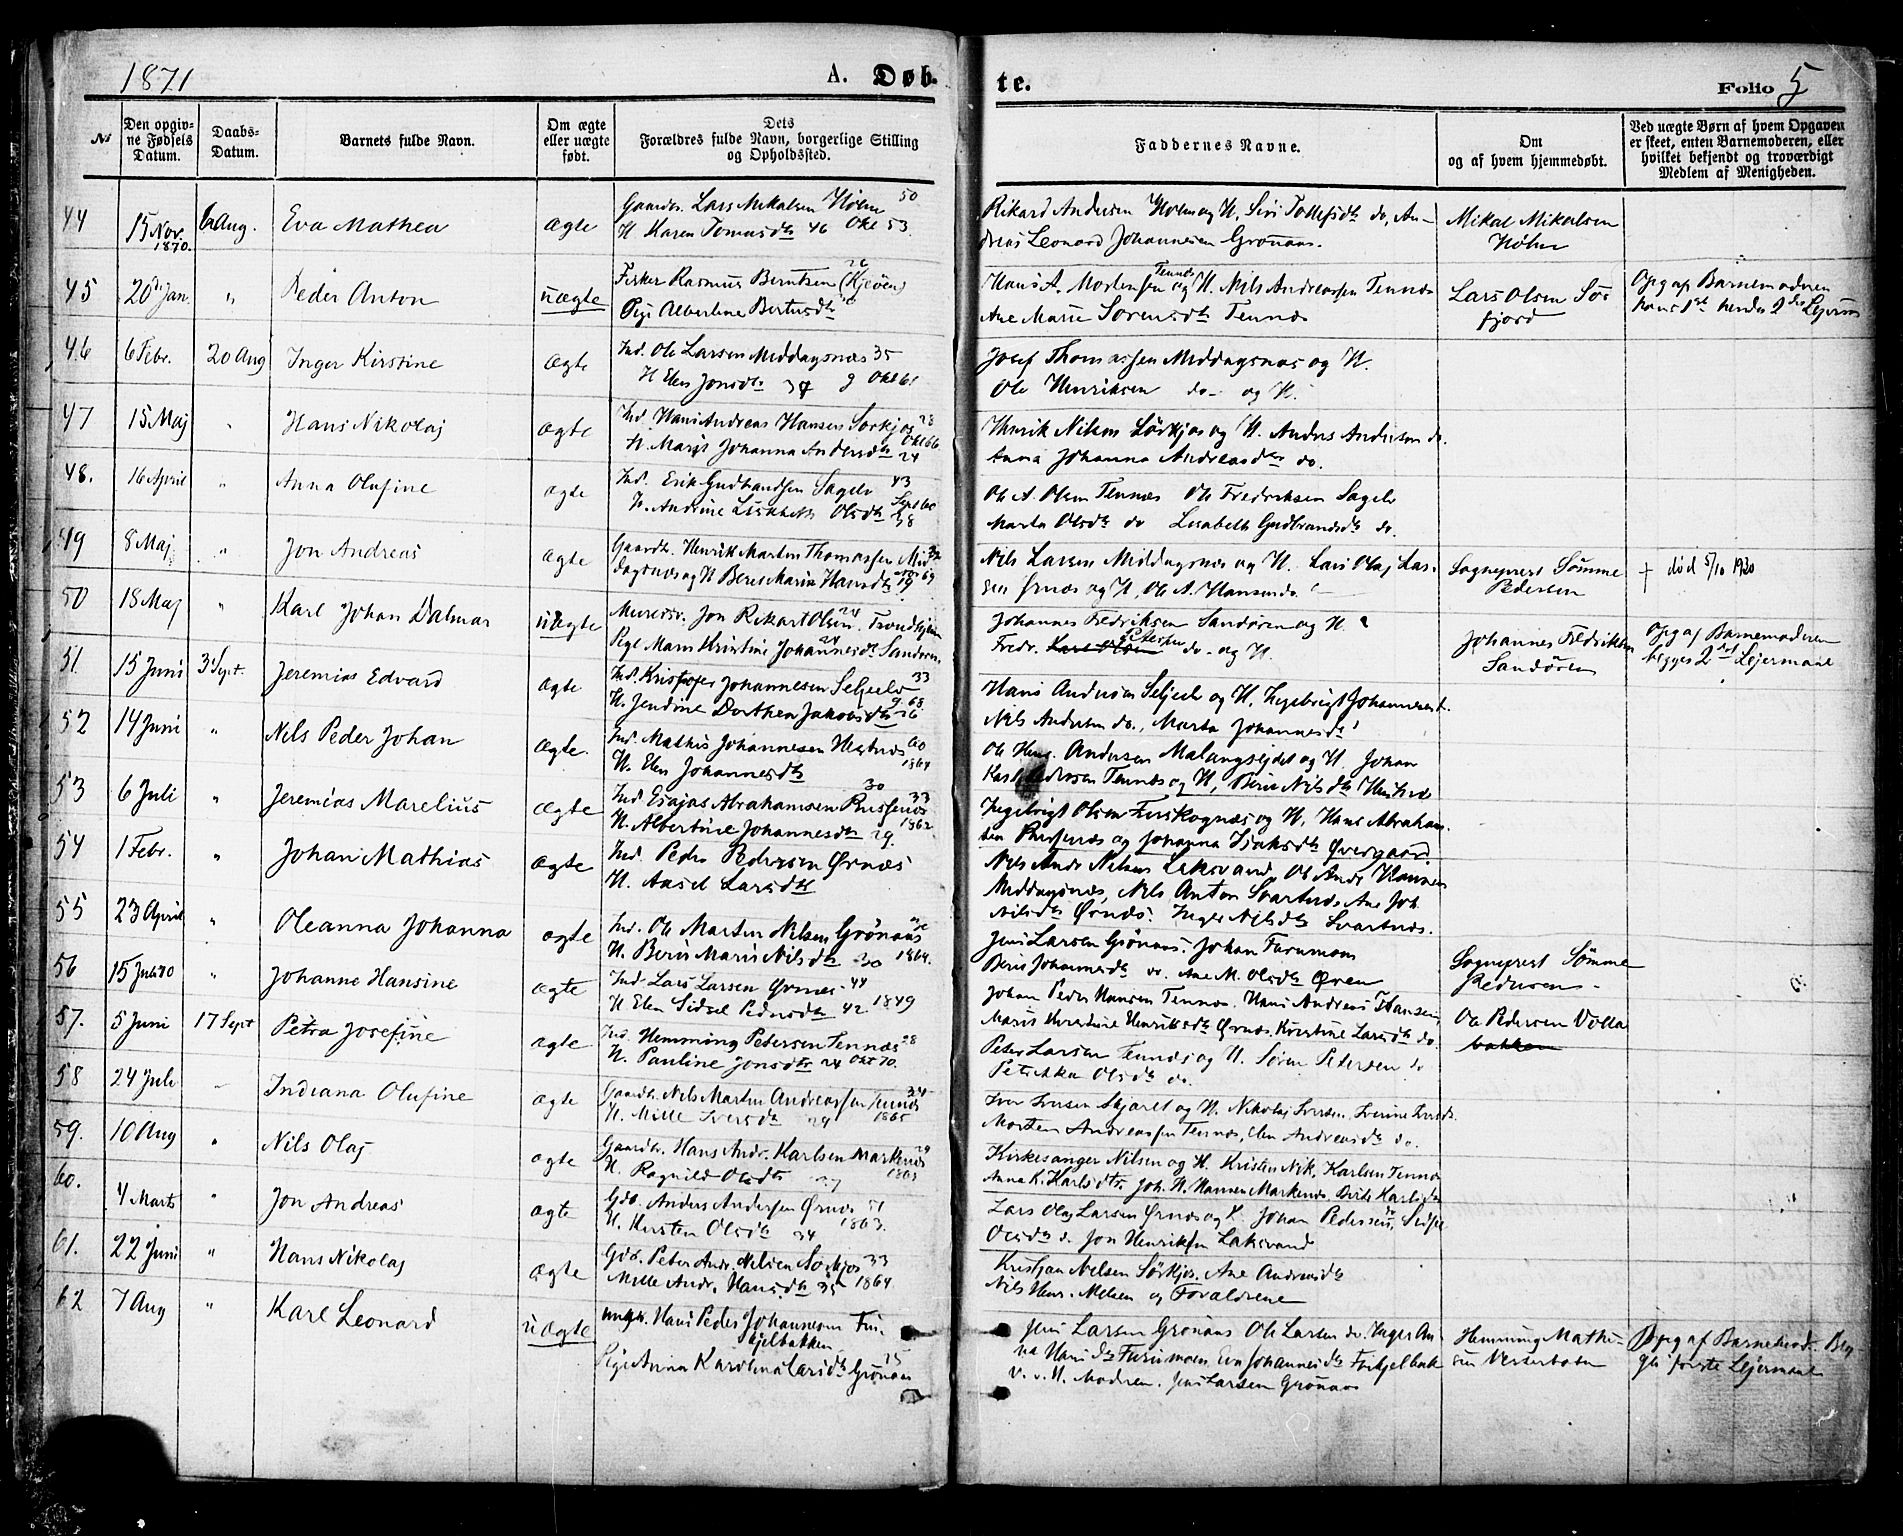 1871
A. Døb-
te.
Folio 5
№
Den opgiv-
ne Fødsels
Datum.
Daabs-
Datum.
Barnets fulde Navn.
Om ægte
eller uægte
født.
Dets
Forældres fulde Navn, borgerlige Stilling
og Opholdssted.
Faddernes Navne.
Om
og af hvem hjemmedøbt.
Ved uægte Børn af hvem Opgaven
er skeet, enten Barnemoderen, eller
hvilket bekjendt og troværdigt
Medlem af Menigheden.
44 15 Nov. 1870. 6 Aug. Eva Mathea ægte
Gaardbr. Lars Mikalsen Holm 50
H. Karen Tomasdtr 46 Okt 53.
Rikard Andersen Holm og H, Siri Tollefsdtr do, An-
dreas Leonard Johannesen Grønaas.
Mikal Mikalsen
Holm
45 20de Jan. " Peder Anton uægte
Fisker Rasmus Berntsen (Kjøen)
Pige Albertine Bertusdtr
Hans A. Mortensen Tennes og H. Nils Andreassen Tennes
Ane Marie Sørensdtr Tennes
Lars Olsen Sør
fjord
Opg af Barnemoderen
hans 1st hendes 2det Lejerm
46 6 Febr. 20 Aug Inger Kirstine ægte
Ind. Ole Larsen Middagsnæs 35
H Elen Jonsdtr 34 g Okt 61
Josef Thomassen Middagsnæs og H.
Ole Henriksen do- og H.
47 15 Maj " Hans Nikolaj ægte
Ind. Hans Andreas Hansen Sørkjos 28
H. Maris Johanna Andersdtr 24 Okt 66.
Henrik Nilsen Sørkjos og H. Anders Andersen do.
Anna Johanna Andreasdtr do.
48. 16 April " Anna Olufine ægte
Ind. Erik Gudbrandsen Sagelv 43
H. Andrine Lisabeth Olsdtr 38
Ole A. Olsen Tennæs Ole Fredriksen Sagelv
Marta Olsdtr do Lisabeth Gudbrandsdtr do.
49 8 Maj " Jon Andreas ægte
Gaardb. Henrik Martin Thomassen Mid-
dagsnæs og H Berit Maria Hansdtr
Nils Larsen Middagsnæs og H. Lars Olaj Lar-
sen Ørnæs og H, Ole A. Hansen do.
Sogneprest Sømme
Pedersen
+ død 5/10 1930
50 18 Maj " Karl Johan Dalmar uægte
Murersv. Jon Rikart Olsen 24. Trondhjem
Pige Maris Kristine Johannesdtr 24 Sandøren
Johannes Fredriksen Sandøren og H.
Fredr. Karl Olsen Petersen do- og H.
Johannes Fredriksen
Sandøren
Opg af Barnemoderen
begges 2det Lejermaal
51. 15 Juni 3 Sept. Jeremias Edvard ægte
Ind. Kristofer Johannesen Seljeelv 33
H. Jendine Dorthea Jakobsdtr 26 g. 68.
Hans Andersen Seljeelv og H, Ingebrigt Johannesen
Nils Andersen do., Marta Johannesdtr
52 14 Juni " Nils Peder Johan ægte.
Ind. Mathis Johannesen Hestnæs 40
H. Elen Johannesdtr 30 1864
Ole Hens. Andersen Malangsejdet og H. Johan
Karl Pedersen Tennæs og H, Berit Nilsdtr Hestnæs
53 6 Juli " Jeremias Marelius ægte
Ind Esajas Abrahamsen Russenes 33
H. Albertine Johannesdtr 29. 1862
Ingebrigt Olsen Fiskognæs og H, Hans Abraham-
sen Russenæs og Johanna Isaksdtr Øvergaard.
54 1 Febr. " Johan Mathias ægte
Ind. Peder Pedersen Ørnæs
H. Aasel Larsdtr
Nils Andr Nilsen Laksvand, Ole Andr Hansen
Middagsnæs, Nils Anton Svartnæs Ane Joh.
Nilsdtr Ørnæs. Inger Nilsdtr Svartnæs.
55 23 April " Oleanna Johanna ægte
Ind. Ole Martin Nilsen Grønaas
H. Berit Maris Nilsdtr 30 1864.
Jens Larsen Grønaas. Johan Furumoen
Berit Johannesdtr do. Ane M. Olsdtr Øren
56 15 Juli 70 " Johanne Hansine ægte
Ind. Lars Larsen Ørnæs 44
H Elen Sidsel Pedersdtr 42 1849
Johan Peder Hansen Tennes. Hans Andreas Hansen,
Maris Kirstine Henriksdtr Ørnæs, Kirstine Larsdtr do.
Sogneprest Sømme
Pedersen
57. 5 Juni 17 Sept Petra Josefine ægte
Ind Hemming Petersen Tennæs 28
H. Pauline Jonsdtr 24 Okt 70.
Peter Larsen Tennæs og H. Søren Petersen do
Petrikka Olsdtr do.
Ole Pedersen Volla
bakken
58 24 Juli " Indiana Olufine ægte
Gaardb. Nils Martin Andreassen Tennæs 34
H. Mille Iversdtr 29 1865
Iver Iversen Skjæret og H. Nikolaj Iversen. Iverine Iversd.
Morten Andreassen Tennæs, Elen Andreasdtr do.
59. 10 Aug " Nils Olaj ægte
Gaardbr. Hans Andr. Karlsen Markenes 29
H. Ragnild Olsdtr 27 1865
Kirkesanger Nilsen og H. Kristen Nik. Karlsen Tennes
Anne K. Karlsdtr. Joh. H. Hansen Markenes. Berit Karlsdtr
60. 4 Marts " Jon Andreas ægte
Gdb. Anders Andersen Ørnæs 51
H. Kirsten Olsdtr 34 1863.
Lars Olaj Larsen Ørnæs og H. Johan Pedersen do, Sidsel
Olsdtr do. Jon Henriksen Laksvand
61. 22 Juni " Hans Nikolaj ægte
Gdb. Peter Andr. Nilsen Sørkjos 33
Mille Andr. Hansdtr 35 1864
Kristjan Nilsen Sørkjos. Ane Andreasdtr
Nils Henr. Nilsen og Forældrene
62 7 Aug " Karl Leonard uægte
Ungk. Hans Peder Johannesen Fin-
kjelbakken
Pige Anna Karolina Larsdtr Grønaas 25
Jens Larsen Grønaas Ole Larsen do. Inger An-
na Hansdtr Furumoen Eva Johannesdtr Finkjelbak
V. v. H. Modren. Jens Larsen Grønaas
Hemming Mathi-
sen Vesterbotn
Opg af Barnemod. Beg-
ges første Lejermaal